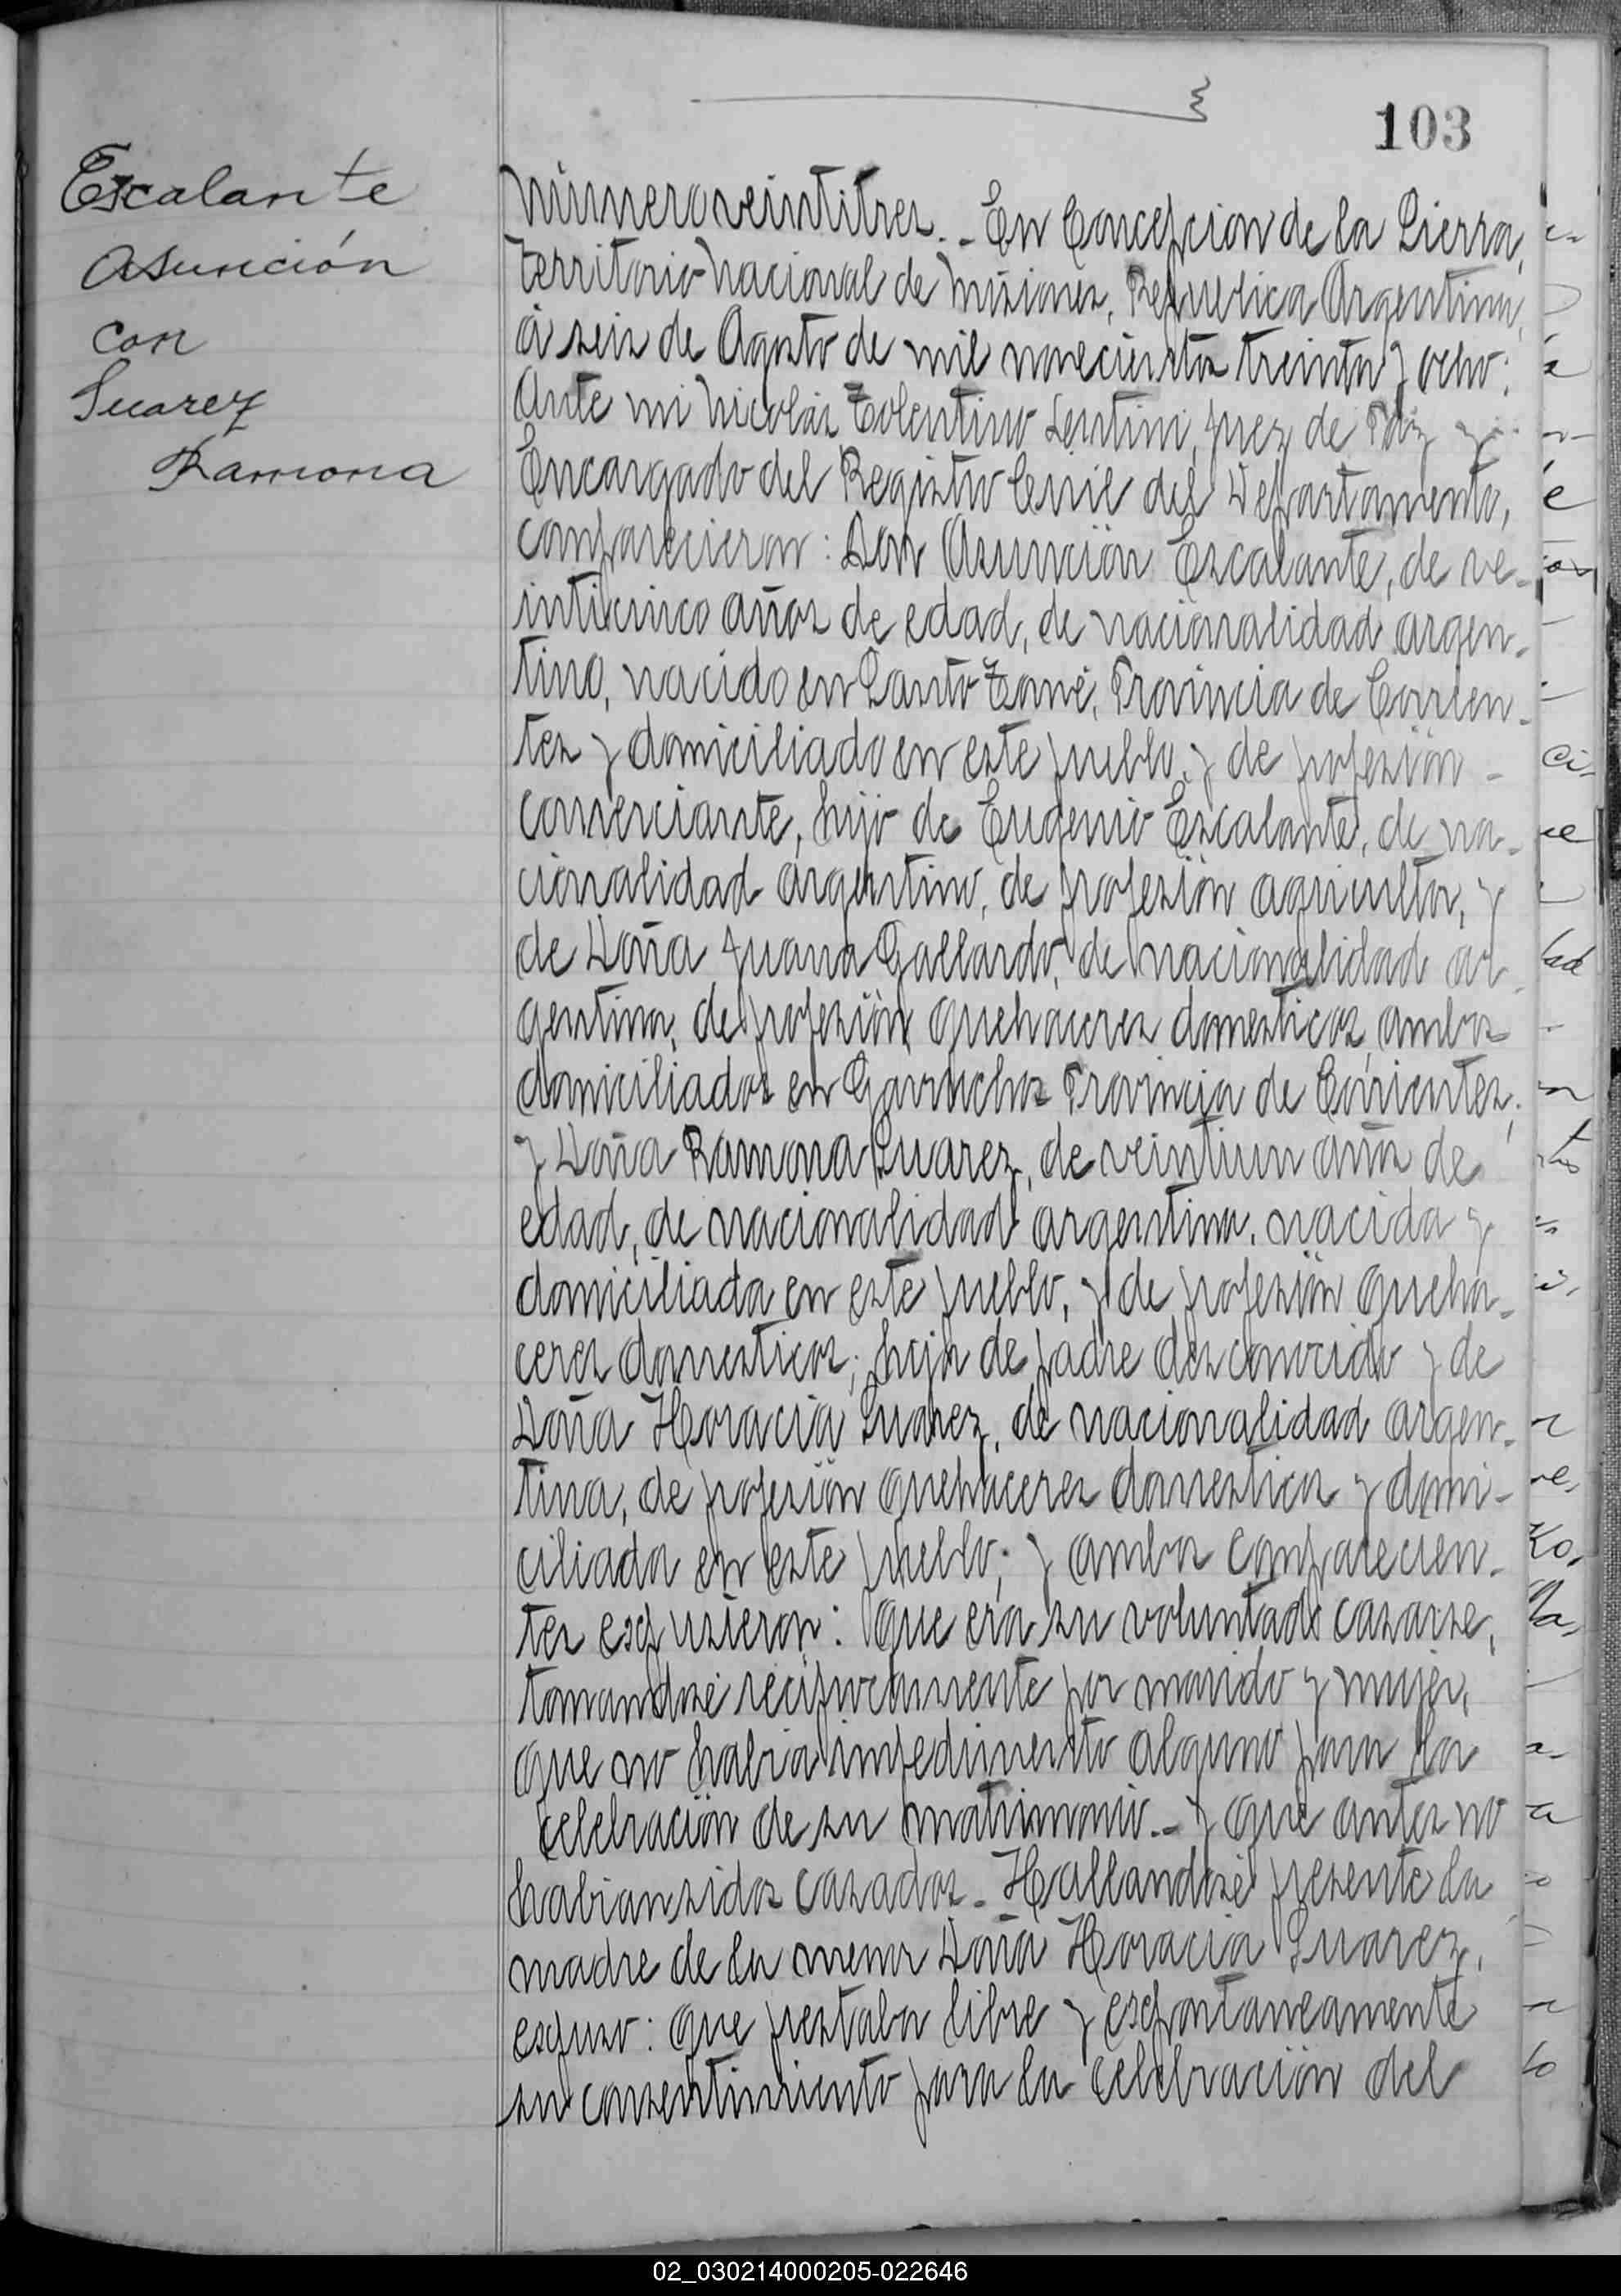 103
Escalante
Asunción
con
Suarez
Ramona
Número veintitres. - En Concepcion de la Sierra,
territorio nacional de Misiones, Republica Argentina,
á seis de Agosto de mil novecientos treinta y ocho:
Ante mi Nicolás Tolentino Sentini, Juez de Paz y
Encargado del Registro Civil del Departamento,
comparecieron: Don Asunción Escalante, de ve-
inticinco años de edad, de nacionalidad argen-
tino, nacido en Santo Tomé, Provincia de Corrien-
tes y domiciliado en este pueblo, y de profesión -
comerciante, hijo de Eugenio Escalante, de na-
cionalidad argentino, de profesión agricultor, y
de Doña Juana Gallardo, de nacionalidad ar-
gentina, de profesión quehaceres domesticos, ambos
domiciliados en Garruchos Provincia de Corrientes;
y Doña Ramona Suarez, de veintiun años de
edad, de nacionalidad argentina, nacida y
domiciliada en este pueblo, y de profesión queha-
ceres domesticos; hija de padre desconocido y de
Doña Horacia Suarez, de nacionalidad argen-
tina, de profesión quehaceres domesticos y domi-
ciliada en este pueblo; y ambos comparecien-
tes expusieron: Que era su voluntad casarse,
tomandosé reciprocamente por marido y mujer,
que no habia impedimento alguno para la
celebración de su matrimonio. - y que antes no
habian sidos casados. - Hallandosé presente la
madre de la menor Doña Horacia Suarez,
expuso: que prestaba libre y espontaneamente
su consentimiento para la celebración del
02_030214000205-022646